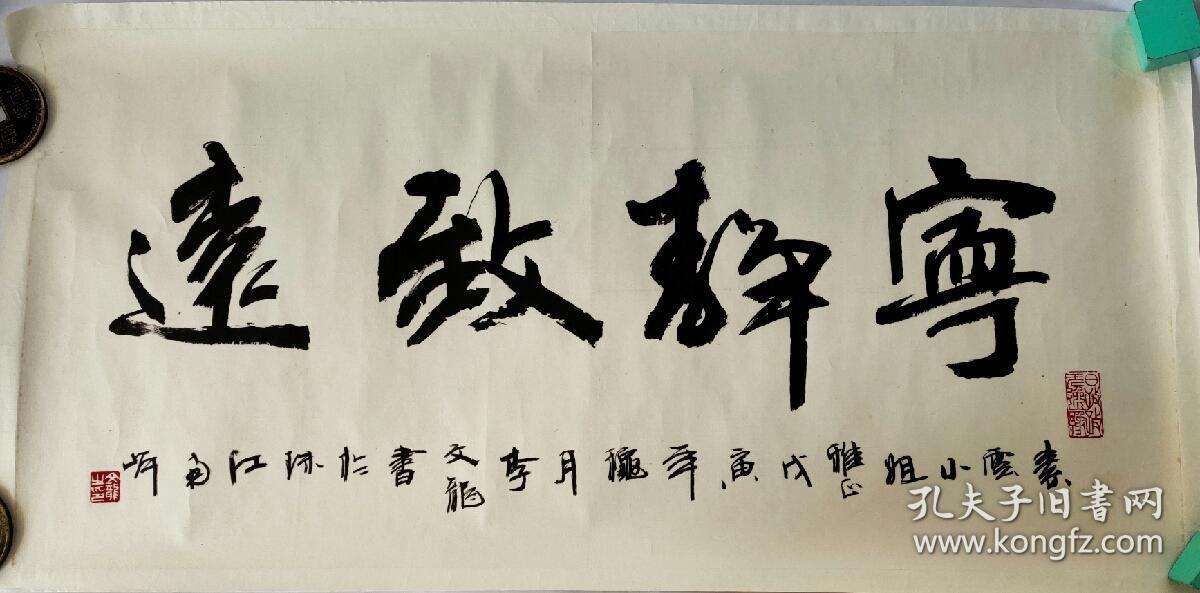 寧靜致遠
素雲小姐雅正戊寅年秋月李文龍書於珠江南岸
文龍之印
孔夫子旧书网
www.kongfz.com